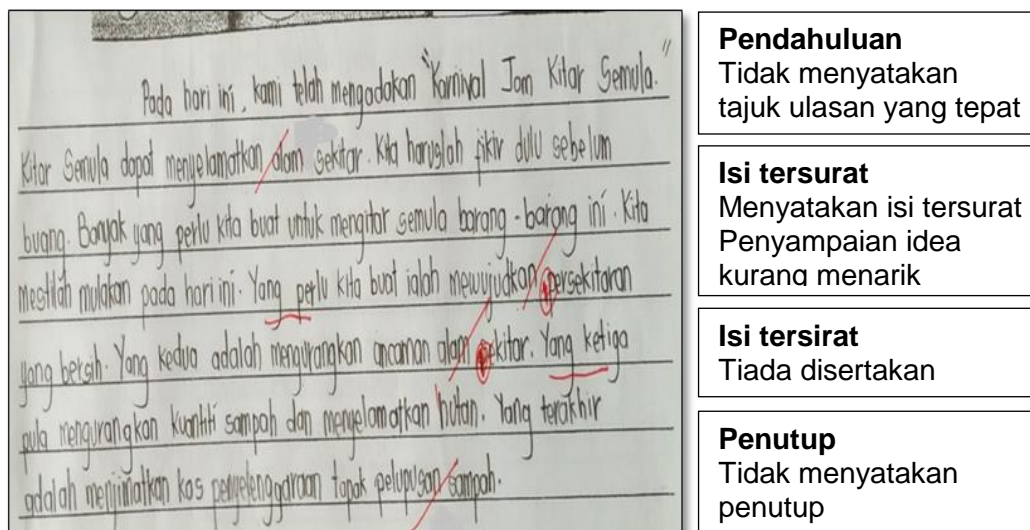 Pada hari ini, kami telah mengadakan "Karnival Jom Kitar Semula."
Kitar Semula dapat menyelamatkan alam sekitar. Kita haruslah fikir dulu sebelum
buang. Banyak yang perlu kita buat untuk mengitar semula barang-barang ini. Kita
mestilah mulakan pada hari ini. Yang perlu kita buat ialah mewujudkan persekitaran
yang bersih. Yang kedua adalah mengurangkan ancaman alam sekitar. Yang ketiga
pula mengurangkan kuantiti sampah dan menyelamatkan hutan. Yang terakhir
adalah menjimatkan kos penyelenggaraan tapak pelupusan sampah.
Pendahuluan
Tidak menyatakan
tajuk ulasan yang tepat
Isi tersurat
Menyatakan isi tersurat
Penyampaian idea
kurang menarik
Isi tersirat
Tiada disertakan
Penutup
Tidak menyatakan
penutup